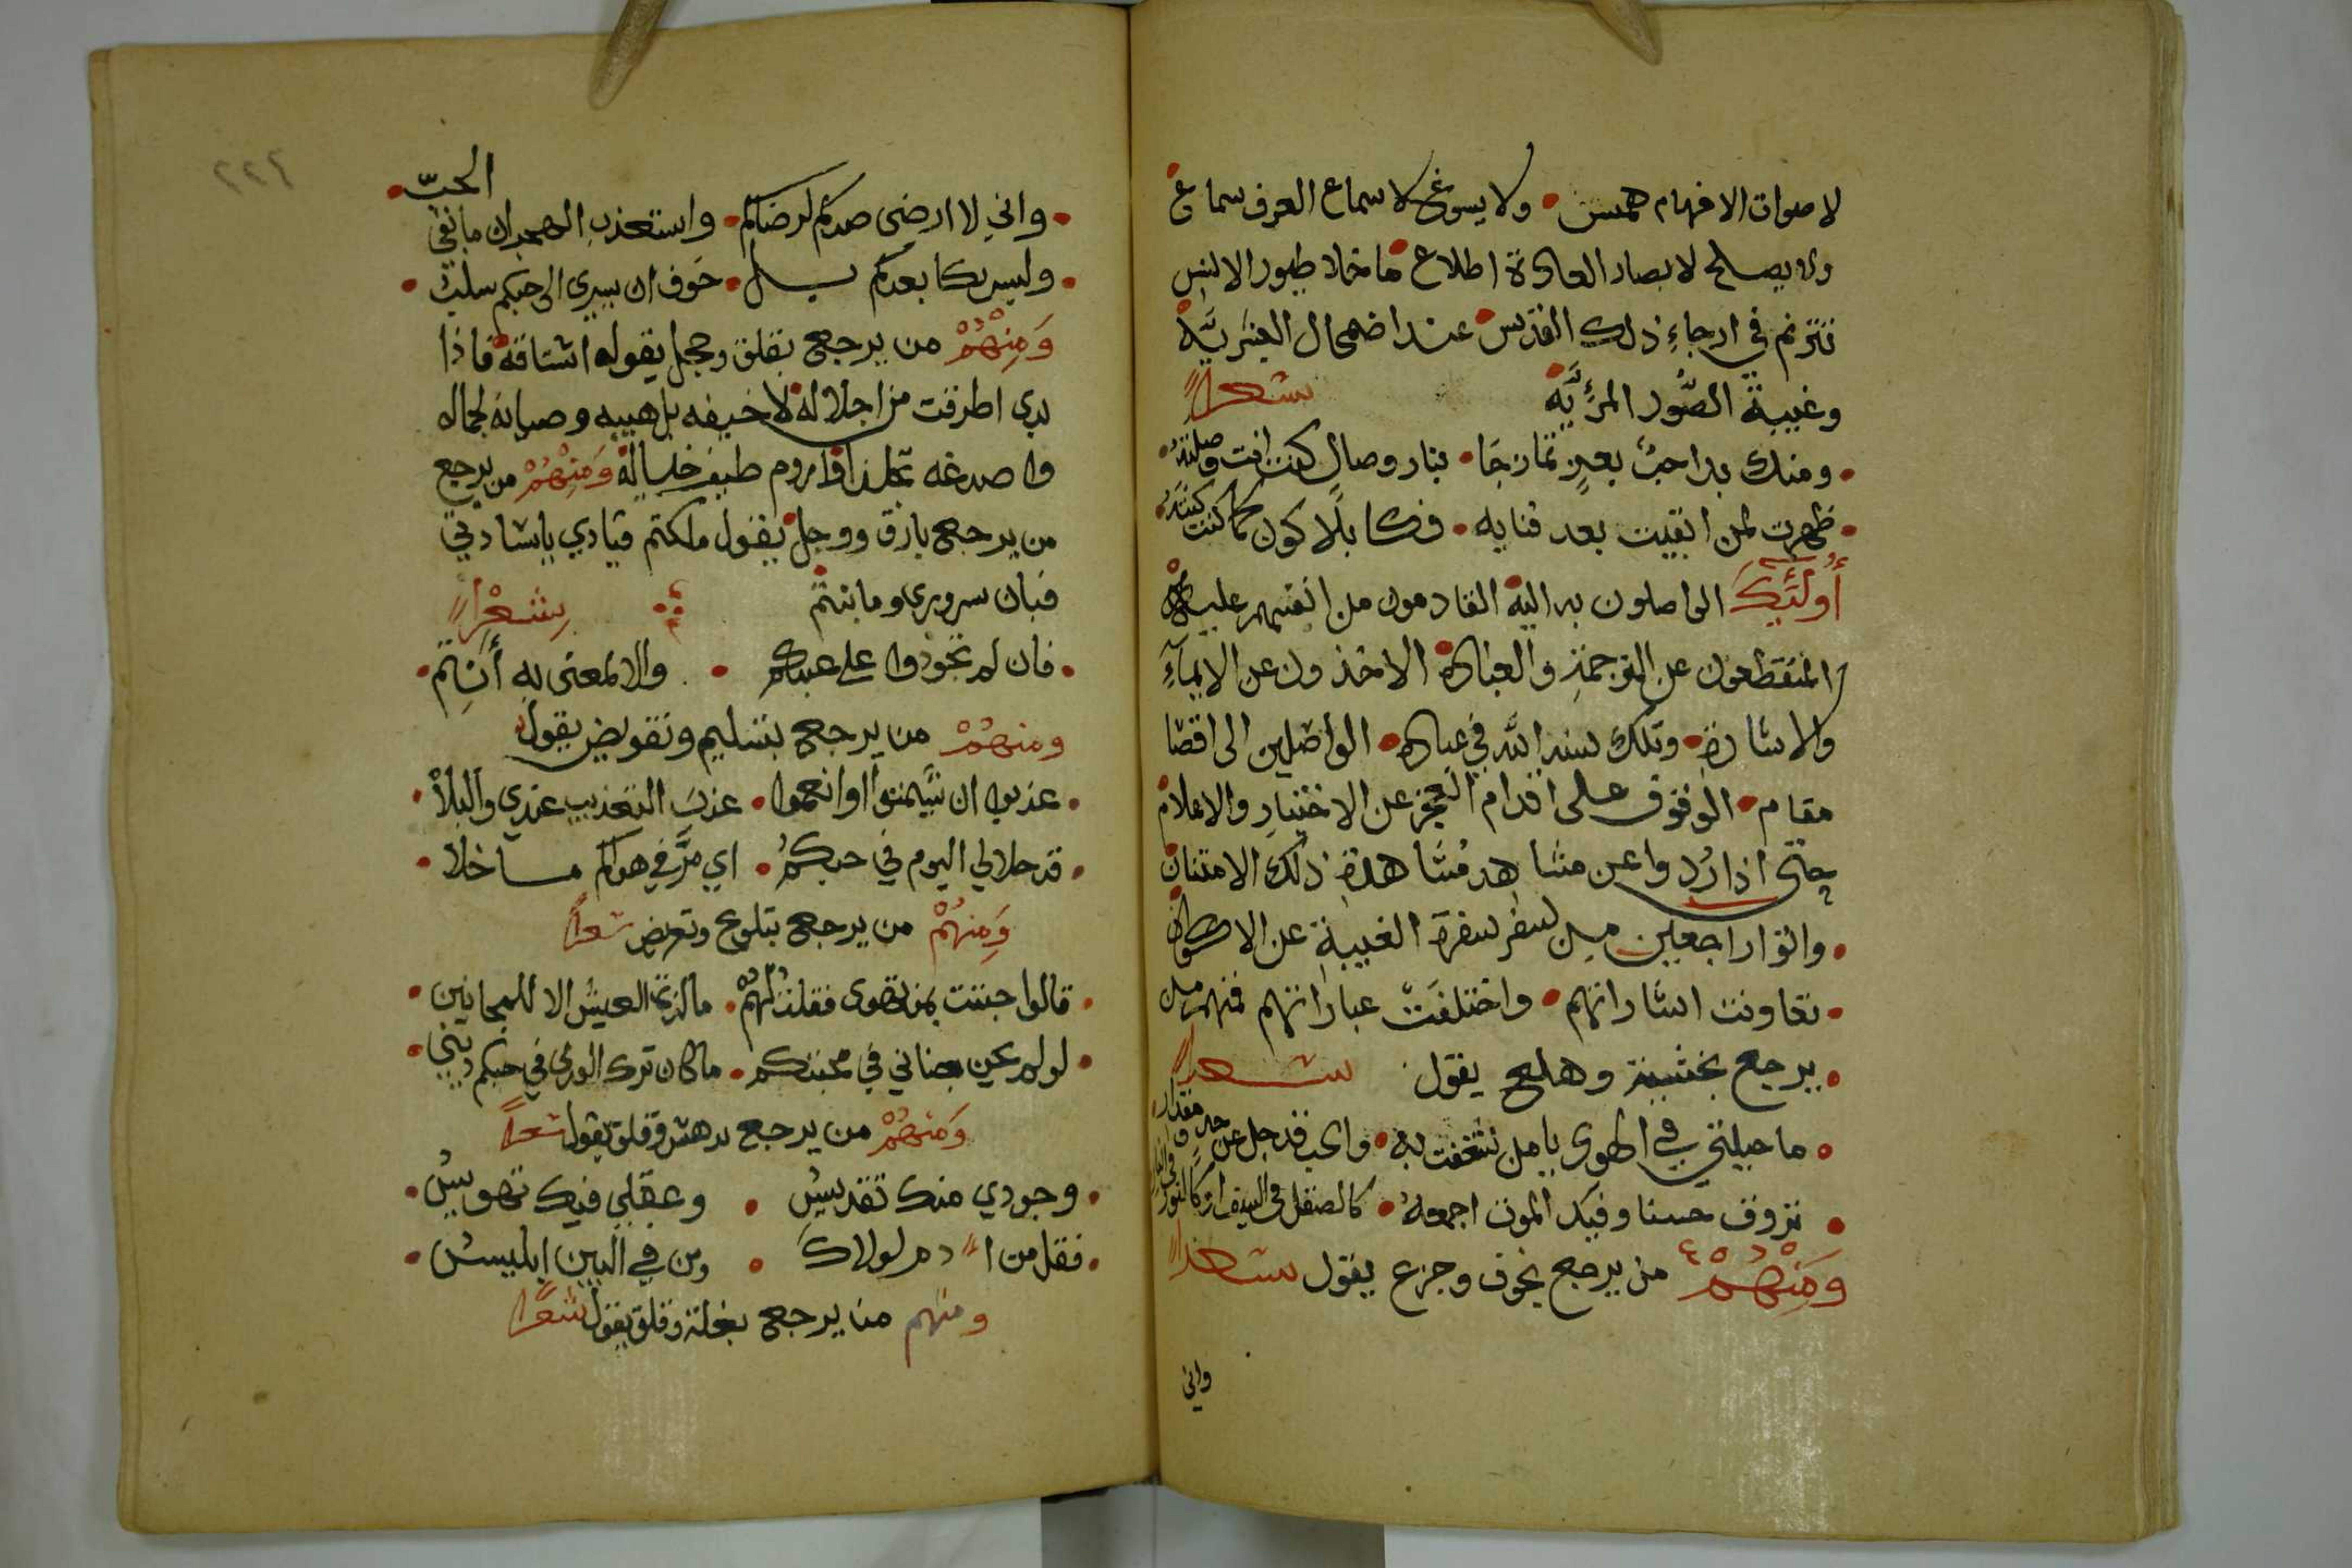 لاصوات الافهام همس • ولا يسوغ لاسماع العرف سماع
ولا يصلح لابصار العادة اطلاع • ما خلا طيور الانس
تترنم في ارجاء ذلك القدس • عند اضمحال البشرية
وغيبة الصور المرئية شعرا
• ومنك بدا حب بعز تمازجا • بنار وصال كنت انت وصلته •
• ظهرت لمن ابقيت بعد فنايه • فكا بلا كون كما كنت كنته •
أولئك الواصلون به اليه القادمون من انفسهم عليه
المنقطعون عن الترجمة والعبارة الاخذون عن الايماء
والاشارة • وتلك سنة الله في عباده • الواصلين الى اقصا
مقام • الوقوف على اقدام العجز عن الاختيار والاعلام
حتى اذا ردوا عن مشاهد مشاهدة ذلك الامتنان
• واتوا راجعين من سفر سفرة الغيبة عن الاكوان
• تفاوتت اشاراتهم • واختلفت عباراتهم فمنهم من
• يرجع بخشية وهلع يقول شعرا
• ما حيلتي في الهوى يا من شغفت به • والحب قد جل عن حد و مقدار
• تزوق حسنا وفيك الموت اجمعه • كالصقل في السيف او كالنور في النار
ومنهم من يرجع بخوف وجزع يقول شعرا
واني
٢٢٤
• واني لا ارضى صدكم لرضاكم • واستعذب الهجران ما بقي الحب •
• وليس بكا بعدكم بسال • خوف ان يسري الى حبكم سلب •
ومنهم من يرجع بقلق وخجل يقوله اشتاقه فاذا
بدى اطرقت من اجلاله لا خيفه بل هيبه وصيانه لجماله
وا صد عنه تجلدا وا روم طيف خياله ومنهم من يرجع
من يرجع بارق ووجل يقول ملكتم قيادي يا سادتي
فبان سروري وما بنتم شعرا
• فان لم تجودوا على عبدكم • والا لمعنى به أنتم •
ومنهم من يرجع بتسليم وتفويض يقول
• عذبوا ان شيتموا او انعموا • عذب التعذيب عندي والبلا •
• قد حلا لي اليوم في حبكم • اي مر في هواكم ما حلا •
ومنهم من يرجع بتلوع وتعرض شعرا
• قالوا جننت بمن تهوى فقلت لهم • ما لذة العيش الا للمجانين •
• لو لم يكن جناني في محبتكم • ما كان ترك الورى في حبكم ديني •
ومنهم من يرجع بدهش وقلق يقول شعرا
• وجودي منك تقديس • وعقلي فيك تهويس •
• فقل من ا دم لولاك • ومن في البين ابليس •
ومنهم من يرجع بغلة وقلق يقول شعرا